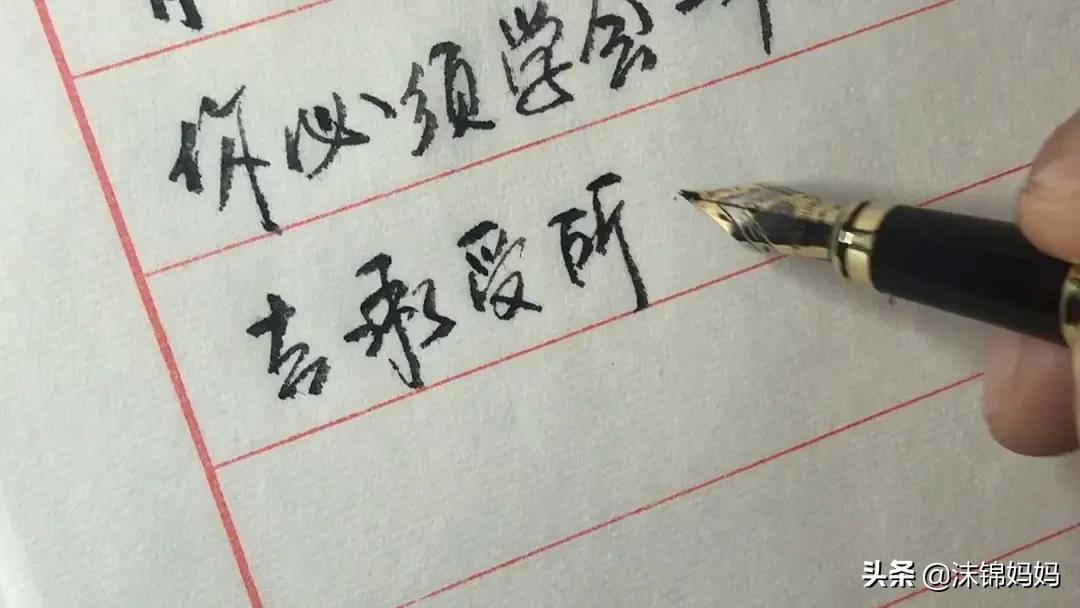 你必须学会
言承受所
头条 @沫锦妈妈